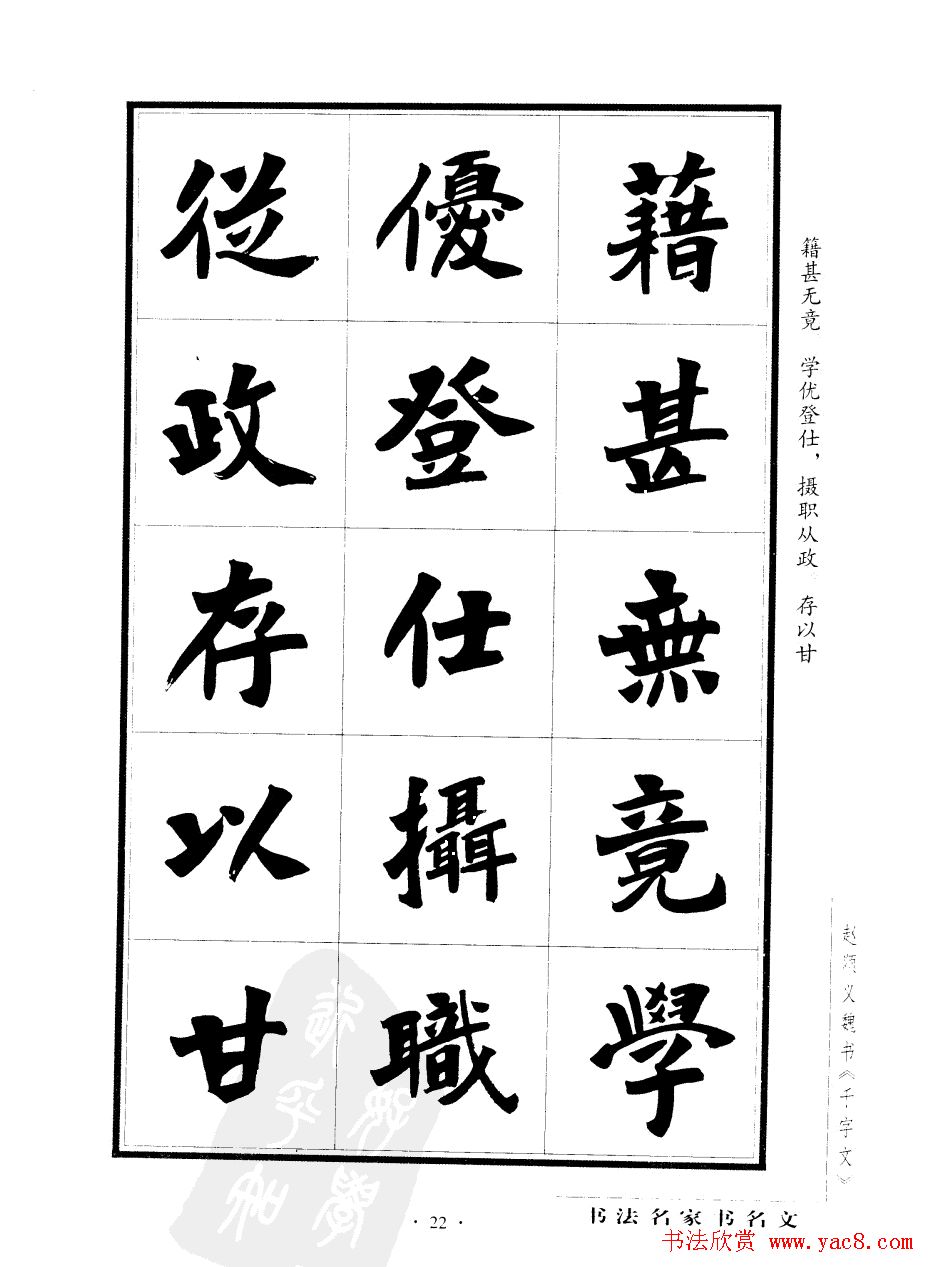 藉甚無竟學
優登仕攝職
從政存以甘
籍甚无竟 学优登仕，摄职从政 存以甘
赵颃义魏书《千字文》
· 22 ·
书法名家书名文
书法欣赏 www.yac8.com